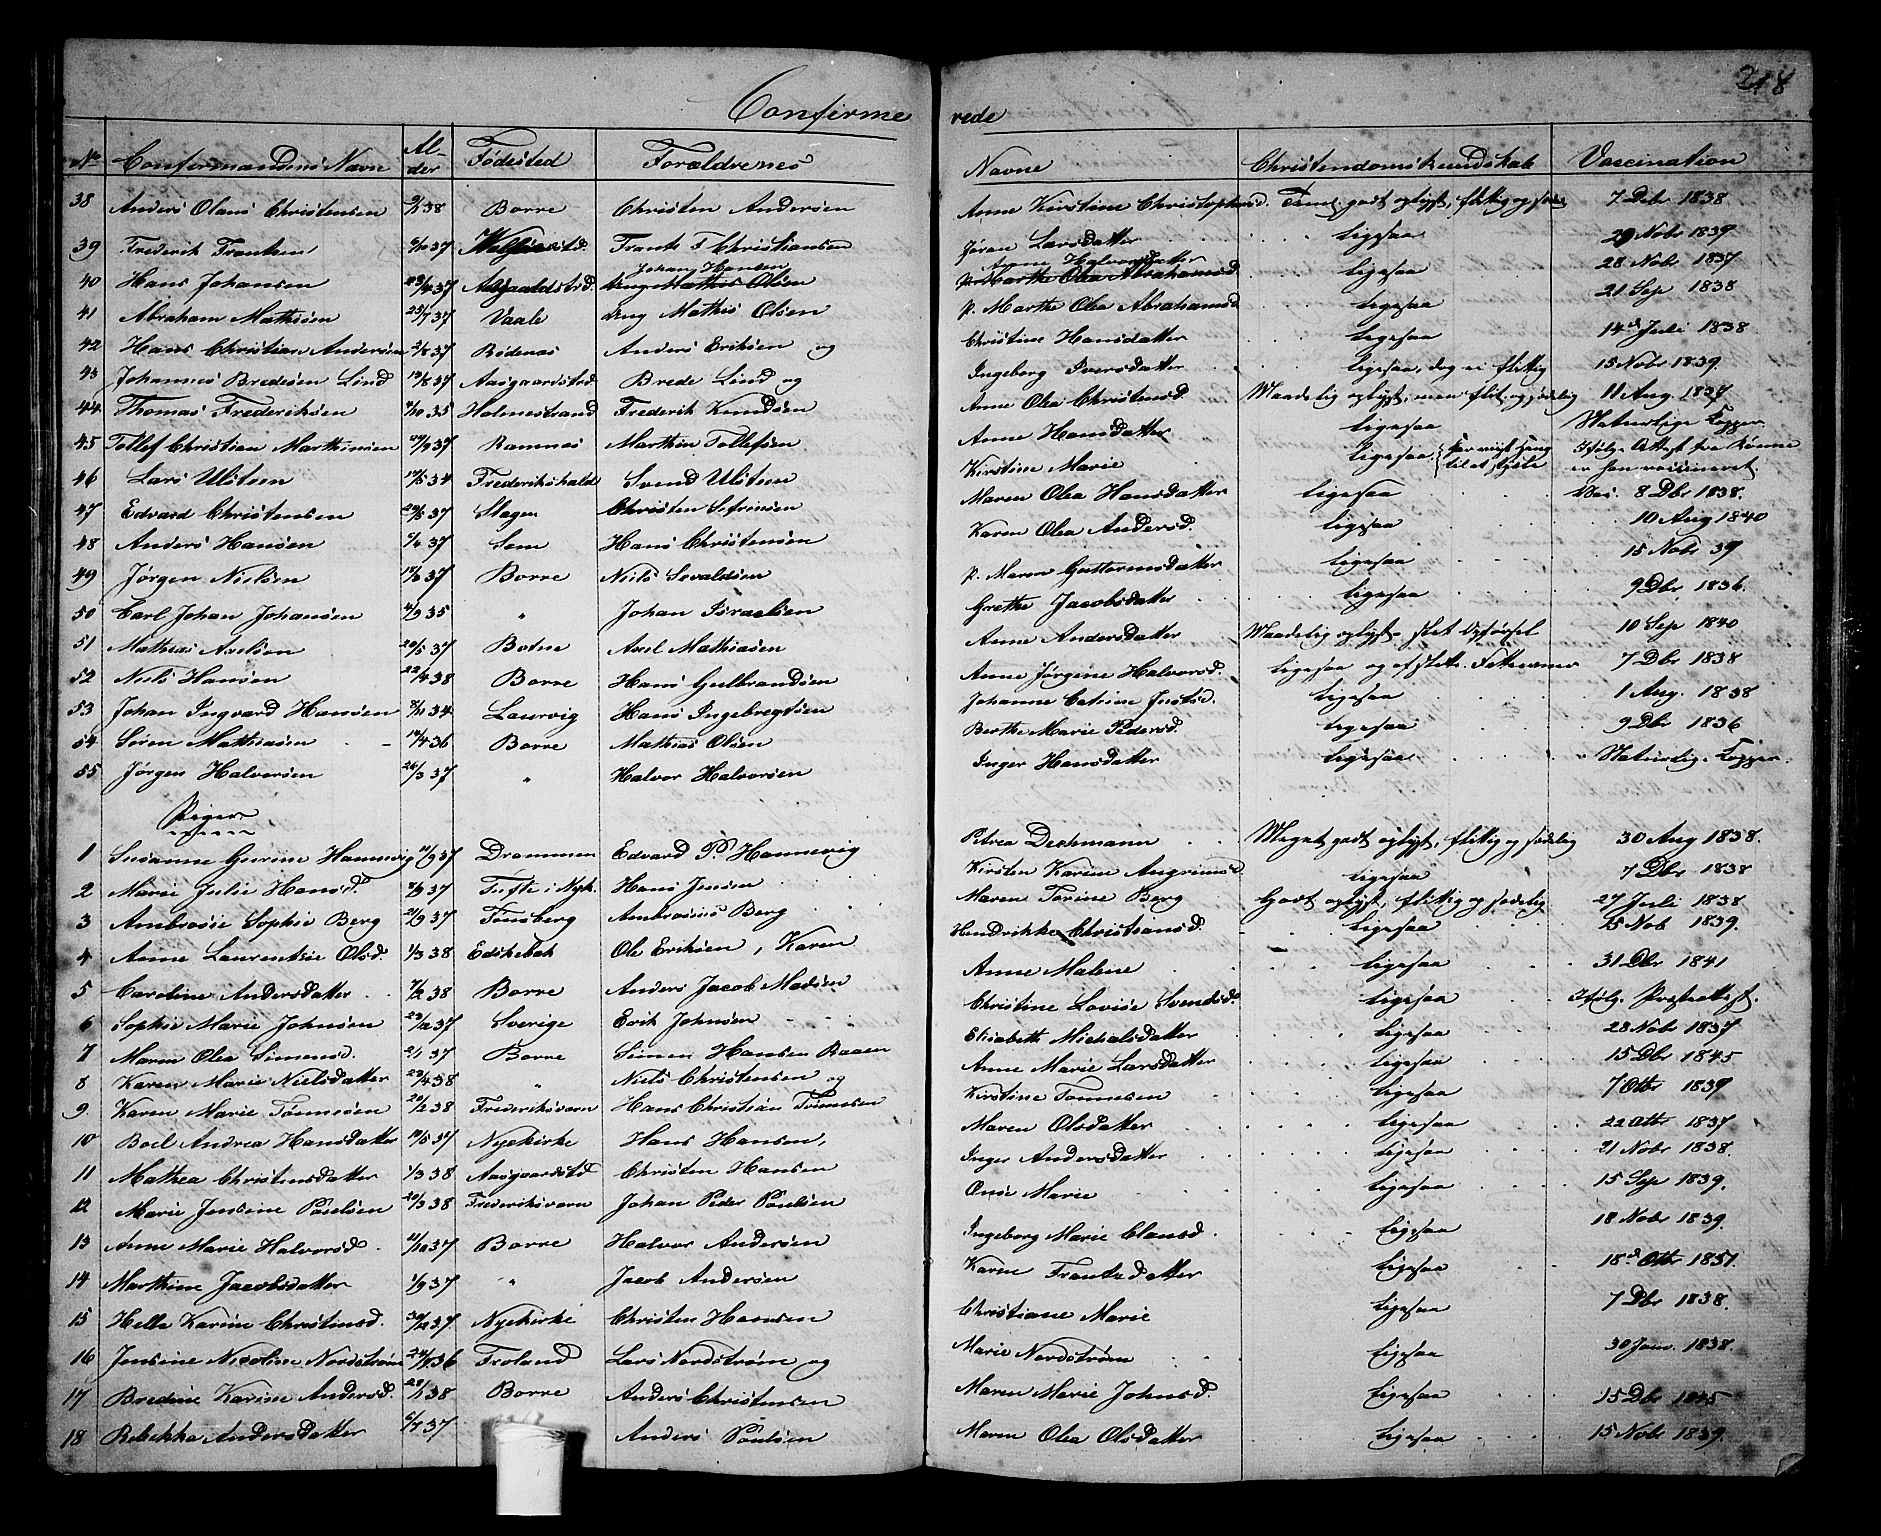 218
Confirme rede
No Confirmandens Navn Al- der Fødested Forældrenes Navne Christendomskundskab Vaccination
38 Anders Olaus Christensen 38 Borre Christen Andersen Anne Kirstine Christophersd. godt oplyst, flittig og 7 Debr 1838
39 Frederik Frantzen 37 Frantz F Christiansen Jøran Larsdatter Ligesaa 29 Nobr 1839
Johan Hansen Anne Halvorsdatter
40 Hans Johansen 37 Aasgaardstrd. Mathis Olsen Marthe Olea Abrahamsd. Ligesaa 28 Nobr 1837
41 Abraham Mathisen 25/7 37 Vaale Ung Mathis Olsen p. Marthe Olea Abrahamsd Ligesaa 21 Sep 1838
42 Hans Christian Andersen 2/8 37 Bødenæs Anders Eriksen og Christine Hansdatter Ligesaa 14d Juli 1838
43 Johannes Bredesen Lind 19/8 37 Aasgaardstrd Brede Lind og Ingeborg Iversdatter Ligesaa, dog ei flittig 15 Nobr 1839.
44 Thomas Frederiksen 35 Holmestrand Frederik Knudsen Anne Olea Christensd. Maadelig oplyst, men flit. og sædelig 11 Aug. 1837
45 Tollef Christian Marthinsen 37 Ramnæs Marthin Tollefsen Anne Hansdatter Ligesaa Naturlige Kopper
46 Lars Ulstsen 34 Frederikshald Svend Ulstsen Kirstine Marie Ligesaa. har viist Hang til at stjæle Ifølge Attest fra Rønne er han vaccineret.
47 Edvard Christensen 37 Slagen Christen Sefrinsen Maren Olea Hansdatter Ligesaa Vac. 8 Dbr 1838.
48 Anders Hansen 37 Sem Hans Christensen Karen Olea Andersd. Ligesaa 10 Aug 1840
49 Jørgen Nielsen 37 Borre Niels Sevaldsen p. Maren Guttormsdatter Ligesaa 15 Nobr 39
50 Carl Johan Johansen 35 " Johan Israelsen Grethe Jacobsdatter Ligesaa 9 Dbr 1836.
51 Mathias Axelsen 37 Botne Axel Mathiasen Anne Andersdatter Maadelig oplyst – slet Opførsel 10 Sep 1840
52 Niels Hansen 22/4 38 Borre Hans Gulbrandsen Anne Jørgine Halvorsd. Ligesaa og af slette 7 Dbr 1838
53 Johan Ingvard Hansen 34 Laurvig Hans Ingebregtsen Johanne Catrine Justsd. Ligesaa 1 Aug. 1838
54 Søren Mathiasen 14/4 36 Borre Mathias Olsen Berthe Marie Pedersd. Ligesaa 9 Dbr 1836
55 Jørgen Halvorsen 26/3 37 " Halvor Halvorsen Inger Hansdatter Ligesaa Naturlig. Kopper.
Piger
1 Susanne Gurine Hannevig 37 Drammen Edvard P. Hannevig Petrea Dechmann Meget godt oplyst, flittig og sædelig 30 Aug 1838.
2 Marie Julie Hansd. 37 Tufte i Nyk. Hans Jensen Kirsten Karine Angrimsd. Ligesaa 7 Dbr 1838
3 Ambrosie Sophie Berg 21/9 37 Tønsberg Ambrosius Berg Maren Torine Berg Godt oplyst, flittig og sædelig 27 Juli 1838
4 Anne Laurentsie Olsd. 1/3 38 Edskebak Ole Eriksen, Karen Hendrikke Christiansd. Ligesaa 15 Nob 1839.
5 Caroline Andersdatter 38 Borre Anders Jacob Madsen Anne Malene Ligesaa 31 Dbr 1841
6 Sophie Marie Johnsen 37 Sverige Erik Johnsen Christine Lovise Svendsd. Ligesaa Ifølg. Præstattest.
7 Maren Olea Simensd. 37 Borre Simen Hansen Raaen Elisabeth Michalsdatter Ligesaa 28 Nobr 1837
8 Karen Marie Nielsdatter 38 " Niels Christensen og Anne Marie Larsdatter Ligesaa 15 Dbr 1845
9. Karen Marie Tønnesen 38 Frederiksværn Hans Christian Tønnesen Kirstine Tønnesen Ligesaa 7 Otbr 1839
10 Boel Andrea Hansdatter 37 Nyekirke Hans Hansen, Maren Olsdatter Ligesaa 22 Otbr 1837
11 Mathea Christensdatter 1/3 38 Aasgaardstd Christen Hansen Inger Andersdatter Ligesaa 21 Nobr 1838.
12 Marie Jensine Poulsen 20/3 38 Frederiksværn Johan Peder Poulsen Onse Marie Ligesaa 15 Sep 1839.
13 Anne Marie Halvorsd 37 Borre Halvor Andersen Ingeborg Marie Clausd. Ligesaa 18 Nobr 1839.
14 Marthine Jacobsdatter 1/9 37 " Jacob Andersen Karen Frantzdatter Ligesaa 18d Otbr 1851.
15 Helle Karine Christensd. 37. Nyekirke Christen Hansen Christiane Marie Ligesaa 7 Dbr 1838.
16 Jensine Nicoline Nordstrøm 36 Froland Lars Nordstrøm og Marie Nordstrøm Ligesaa 30 Jan. 1838.
17 Bredine Karine Andersd. 28/1 38 Borre Anders Christensen Maren Marie Johnsd. Ligesaa 15 Dbr 1845
18 Rebekka Andersdatter 37 Anders Poulsen Maren Olea Olsdatter Ligesaa 15 Nobr 1839.